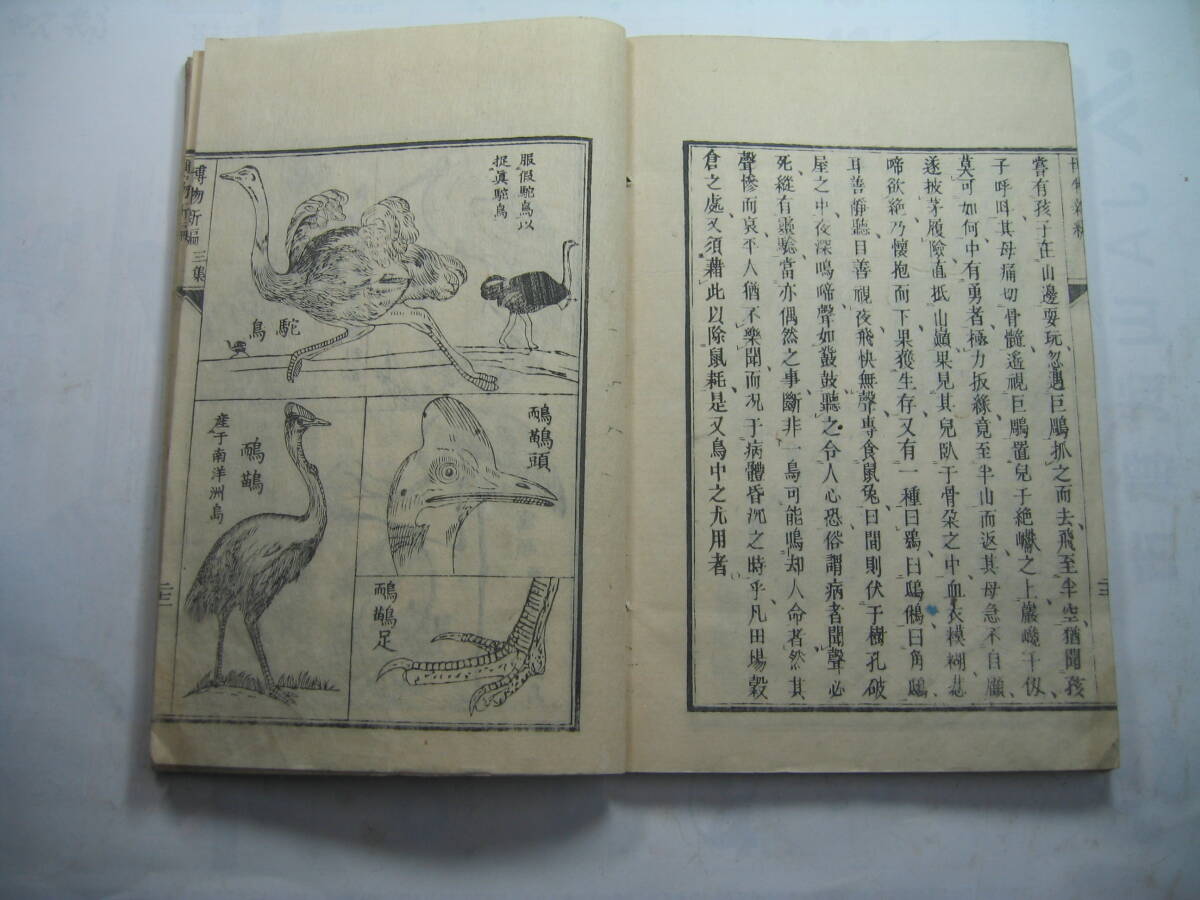 嘗有孩子在山邊耍玩忽遇巨鵰抓之而去飛至半空猶聞孩
子呼呌其母痛切骨髓遙視巨鵰置兒于絕巘之上巖巉千仭
莫可如何中有勇者極力扳緣竟至半山而返其母急不自顧
遂披茅履險直抵山巔果見其兒臥于骨朵之中血衣模糊悲
啼欲絕乃懷抱而下果獲生存又有一種曰鴞曰鴟鵂曰角鴟
耳善靜聽目善視夜飛快無聲專食鼠兔日間則伏于樹孔破
屋之中夜深鳴啼聲如發鼓聽之令人心恐俗謂病者聞聲必
死縱有靈騐當亦偶然之事斷非一鳥可能鳴却人命者然其
聲慘而哀平人猶不樂聞而况于病體昏沉之時乎凡田塲穀
倉之處又須藉此以除鼠耗是又鳥中之尤用者
博物新編
三集
服假駝鳥以
捉眞駝鳥
駝鳥
鴯鶓頭
鴯鶓
產于南洋洲島
鴯鶓足